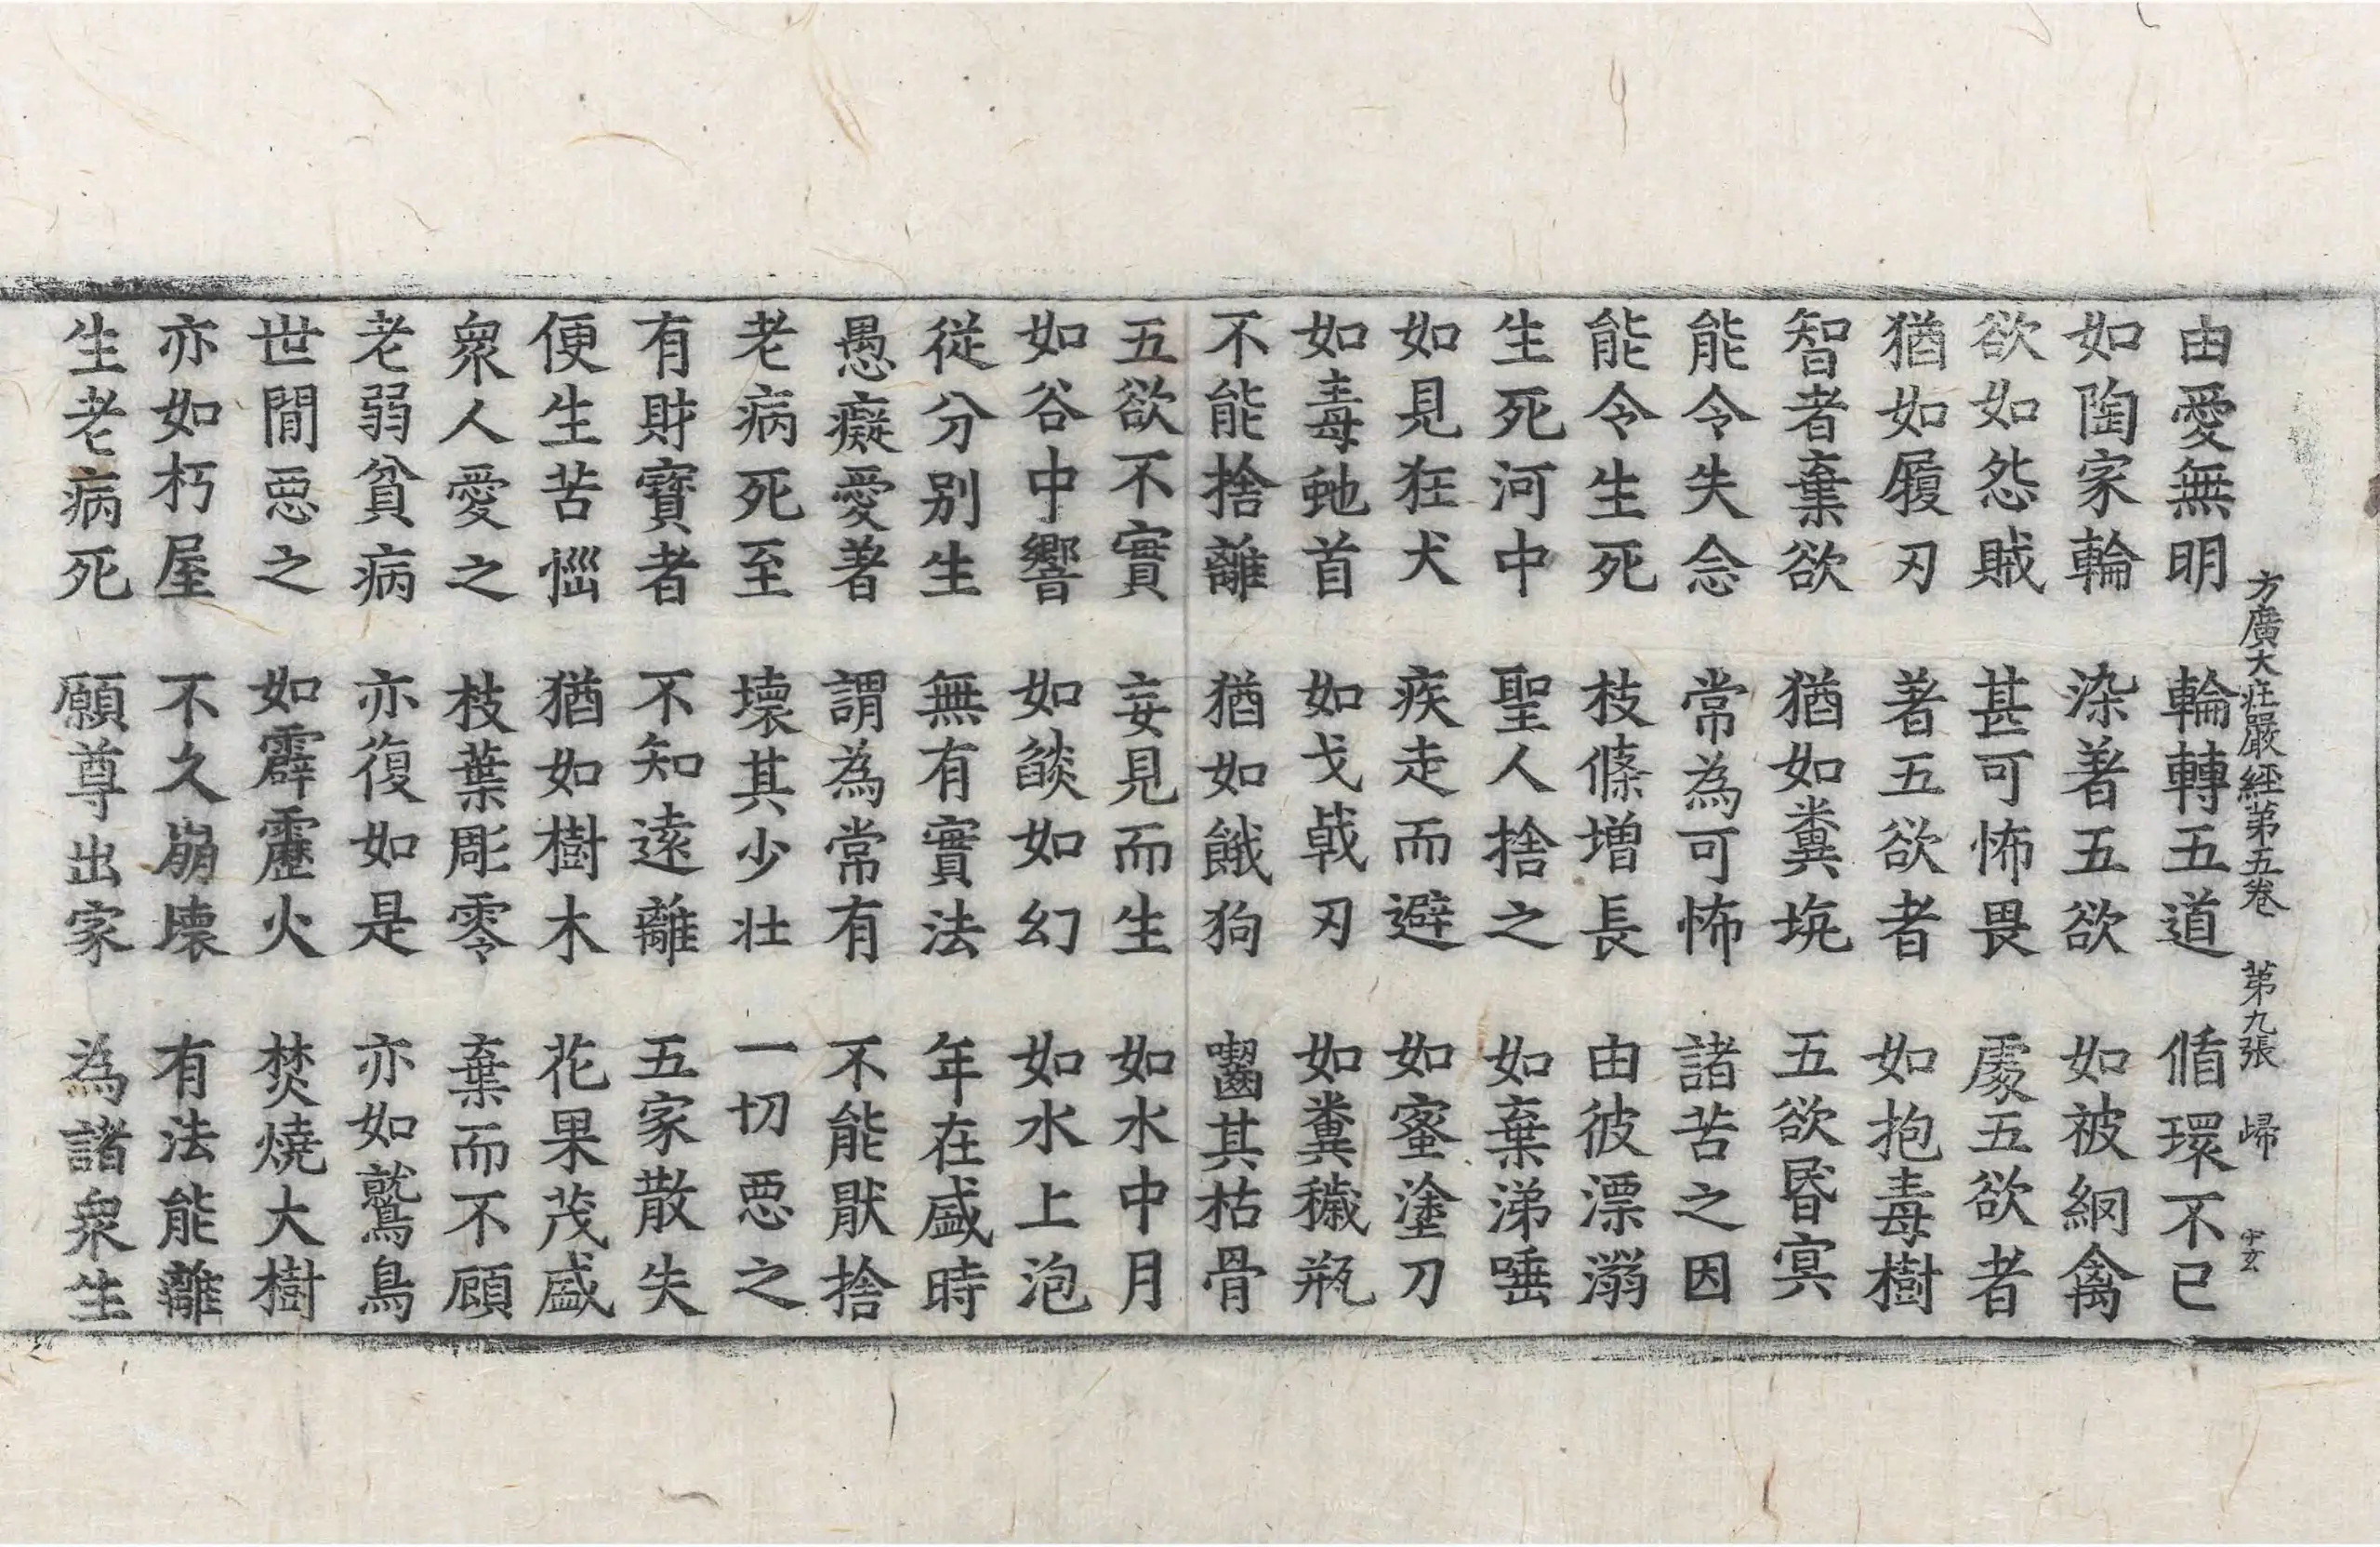 方廣大莊嚴經第五卷 第九張 歸 中玄
由愛無明 輪轉五道 循環不已
如陶家輪 染著五欲 如被網禽
欲如怨賊 甚可怖畏 處五欲者
猶如履刃 著五欲者 如抱毒樹
智者棄欲 猶如糞坑 五欲昬冥
能令失念 常為可怖 諸苦之因
能令生死 枝條增長 由彼漂溺
生死河中 聖人捨之 如棄涕唾
如見狂犬 疾走而避 如蜜塗刀
如毒虵首 如戈戟刃 如糞穢瓶
不能捨離 猶如餓狗 齧其枯骨
五欲不實 妄見而生 如水中月
如谷中響 如燄如幻 如水上泡
從分別生 無有實法 年在盛時
愚癡愛著 謂為常有 不能猒捨
老病死至 壞其少壯 一切惡之
有財寶者 不知遠離 五家散失
便生苦惱 猶如樹木 花果茂盛
衆人愛之 枝葉彫零 棄而不顧
老弱貧病 亦復如是 亦如鷲鳥
世閒惡之 如霹靂火 焚燒大樹
亦如朽屋 不久崩壞 有法能離
生老病死 願尊出家 為諸衆生